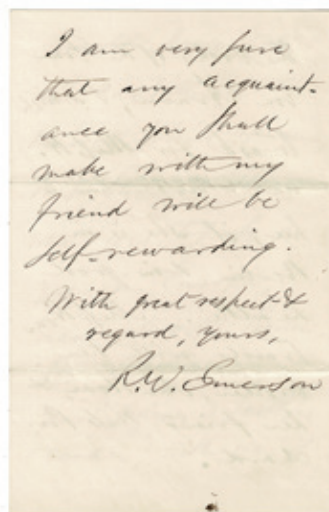 I am very sure
that any acquaint-
ance you shall
make with my
friend will be
self-rewarding.
With great respect &
regard, yours,
R. W. Emerson